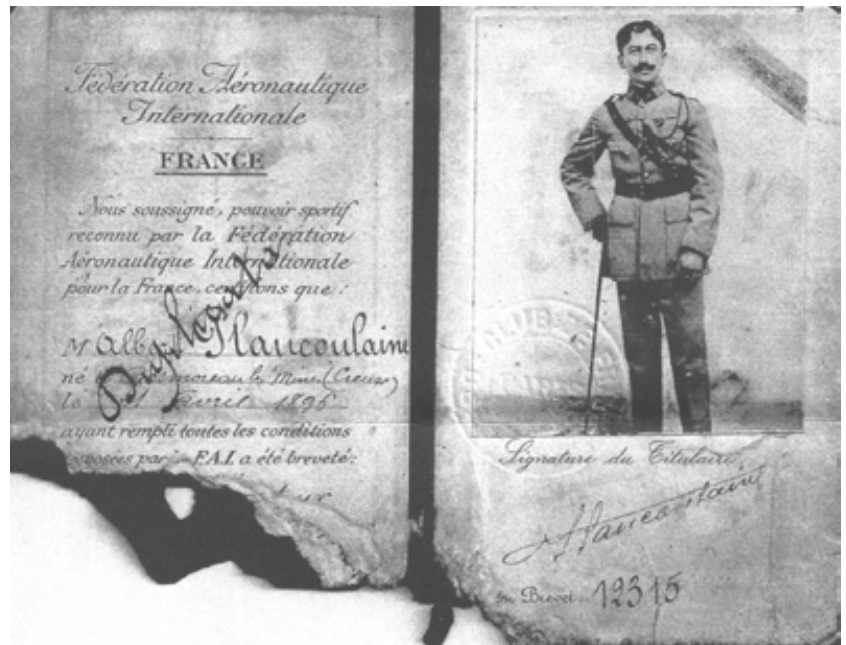 Fédération Aéronautique
Internationale
FRANCE
Nous soussigné, pouvoir sportif
reconnu par la Fédération
Aéronautique Internationale
pour la France, certifions que :
M Flaucoulaine
Duplicata
né
le avril 1895
ayant rempli toutes les conditions
par F.A.I. a été breveté :
Signature du Titulaire,
Brevet 12315